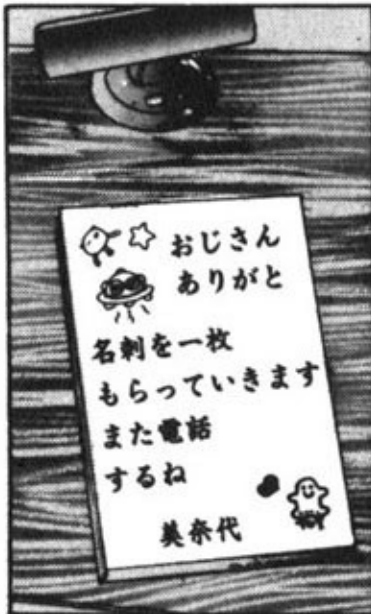 おじさん
ありがと
名刺を一枚
もらっていきます
また電話
するね
美奈代